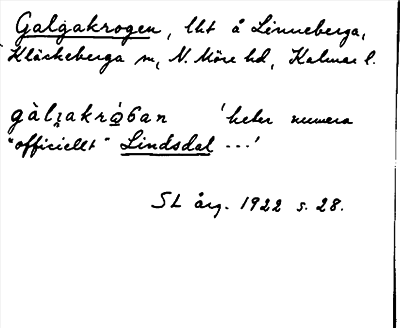 Galgakrogen, lht å Linneberga,
Kläckeberga sn, N. Möre hd, Kalmar l.
gàlgakrǿgan 'heter numera
"officiellt" Lindsdal ...'
SL årg. 1922 s. 28.